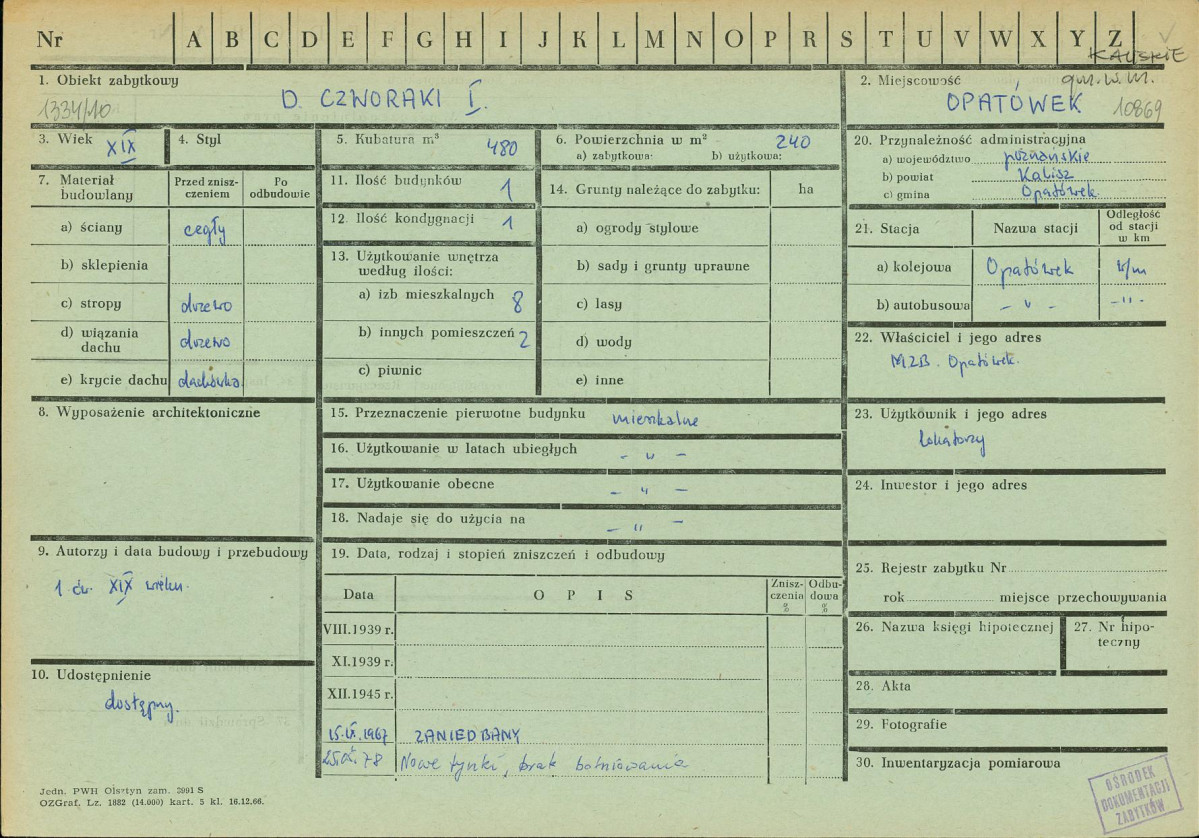 Nr A B C D E F G H I J K L M N O P R S T U V W X Y Z
KALISKIE
1. Obiekt zabytkowy
1334/10
D. CZWORAKI I.
2. Miejscowość
gm. w. m.
OPATÓWEK 10869
3. Wiek XIX
4. Styl
5. Kubatura m³ 480
6. Powierzchnia w m² 240
a) zabytkowa: b) użytkowa:
7. Materiał budowlany
Przed znisz-
czeniem
Po
odbudowie
a) ściany cegły
b) sklepienia
c) stropy drzewo
d) wiązania
dachu drzewo
e) krycie dachu dachówka
8. Wyposażenie architektoniczne
9. Autorzy i data budowy i przebudowy
1 ćw. XIX wieku.
10. Udostępnienie
dostępny.
11. Ilość budynków 1
12. Ilość kondygnacji 1
13. Użytkowanie wnętrza
według ilości:
a) izb mieszkalnych 8
b) innych pomieszczeń 2
c) piwnic
14. Grunty należące do zabytku: ha
a) ogrody stylowe
b) sady i grunty uprawne
c) lasy
d) wody
e) inne
15. Przeznaczenie pierwotne budynku mieszkalne
16. Użytkowanie w latach ubiegłych - " -
17. Użytkowanie obecne - " -
18. Nadaje się do użycia na - " -
19. Data, rodzaj i stopień zniszczeń i odbudowy
Data O P I S
Znisz-
czenia
%
Odbu-
dowa
%
VIII.1939 r.
XI.1939 r.
XII.1945 r.
15.IX.1967 ZANIEDBANY
78 Nowe tynki, brak
20. Przynależność administracyjna
a) województwo poznańskie
b) powiat Kalisz
c) gmina Opatówek.
21. Stacja Nazwa stacji
Odległość
od stacji
w km
a) kolejowa Opatówek w/m
b) autobusowa - " - - " -
22. Właściciel i jego adres
MZB. Opatówek.
23. Użytkownik i jego adres
lokatorzy
24. Inwestor i jego adres
25. Rejestr zabytku Nr
rok miejsce przechowywania
26. Nazwa księgi hipotecznej
27. Nr hipo-
teczny
28. Akta
29. Fotografie
30. Inwentaryzacja pomiarowa
OŚRODEK
DOKUMENTACJI
ZABYTKÓW
Jedn. PWH Olsztyn zam. 3991 S
OZGraf. Lz. 1882 (14.000) kart. 5 kl. 16.12.66.